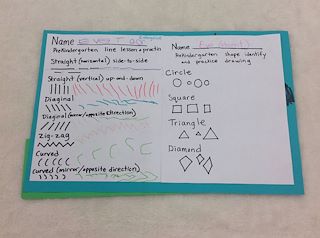 Name
Prekindergarten line lesson & practice
Straight (horizontal) side-to-side
Straight (vertical) up-and-down
Diaginal
Diaginal (mirror/opposite direction)
Zig-zag
Curved
Curved (mirror/opposite direction)
Name
Prekindergarten shape identify
and practice drawing
Circle
Square
Triangle
Diamond